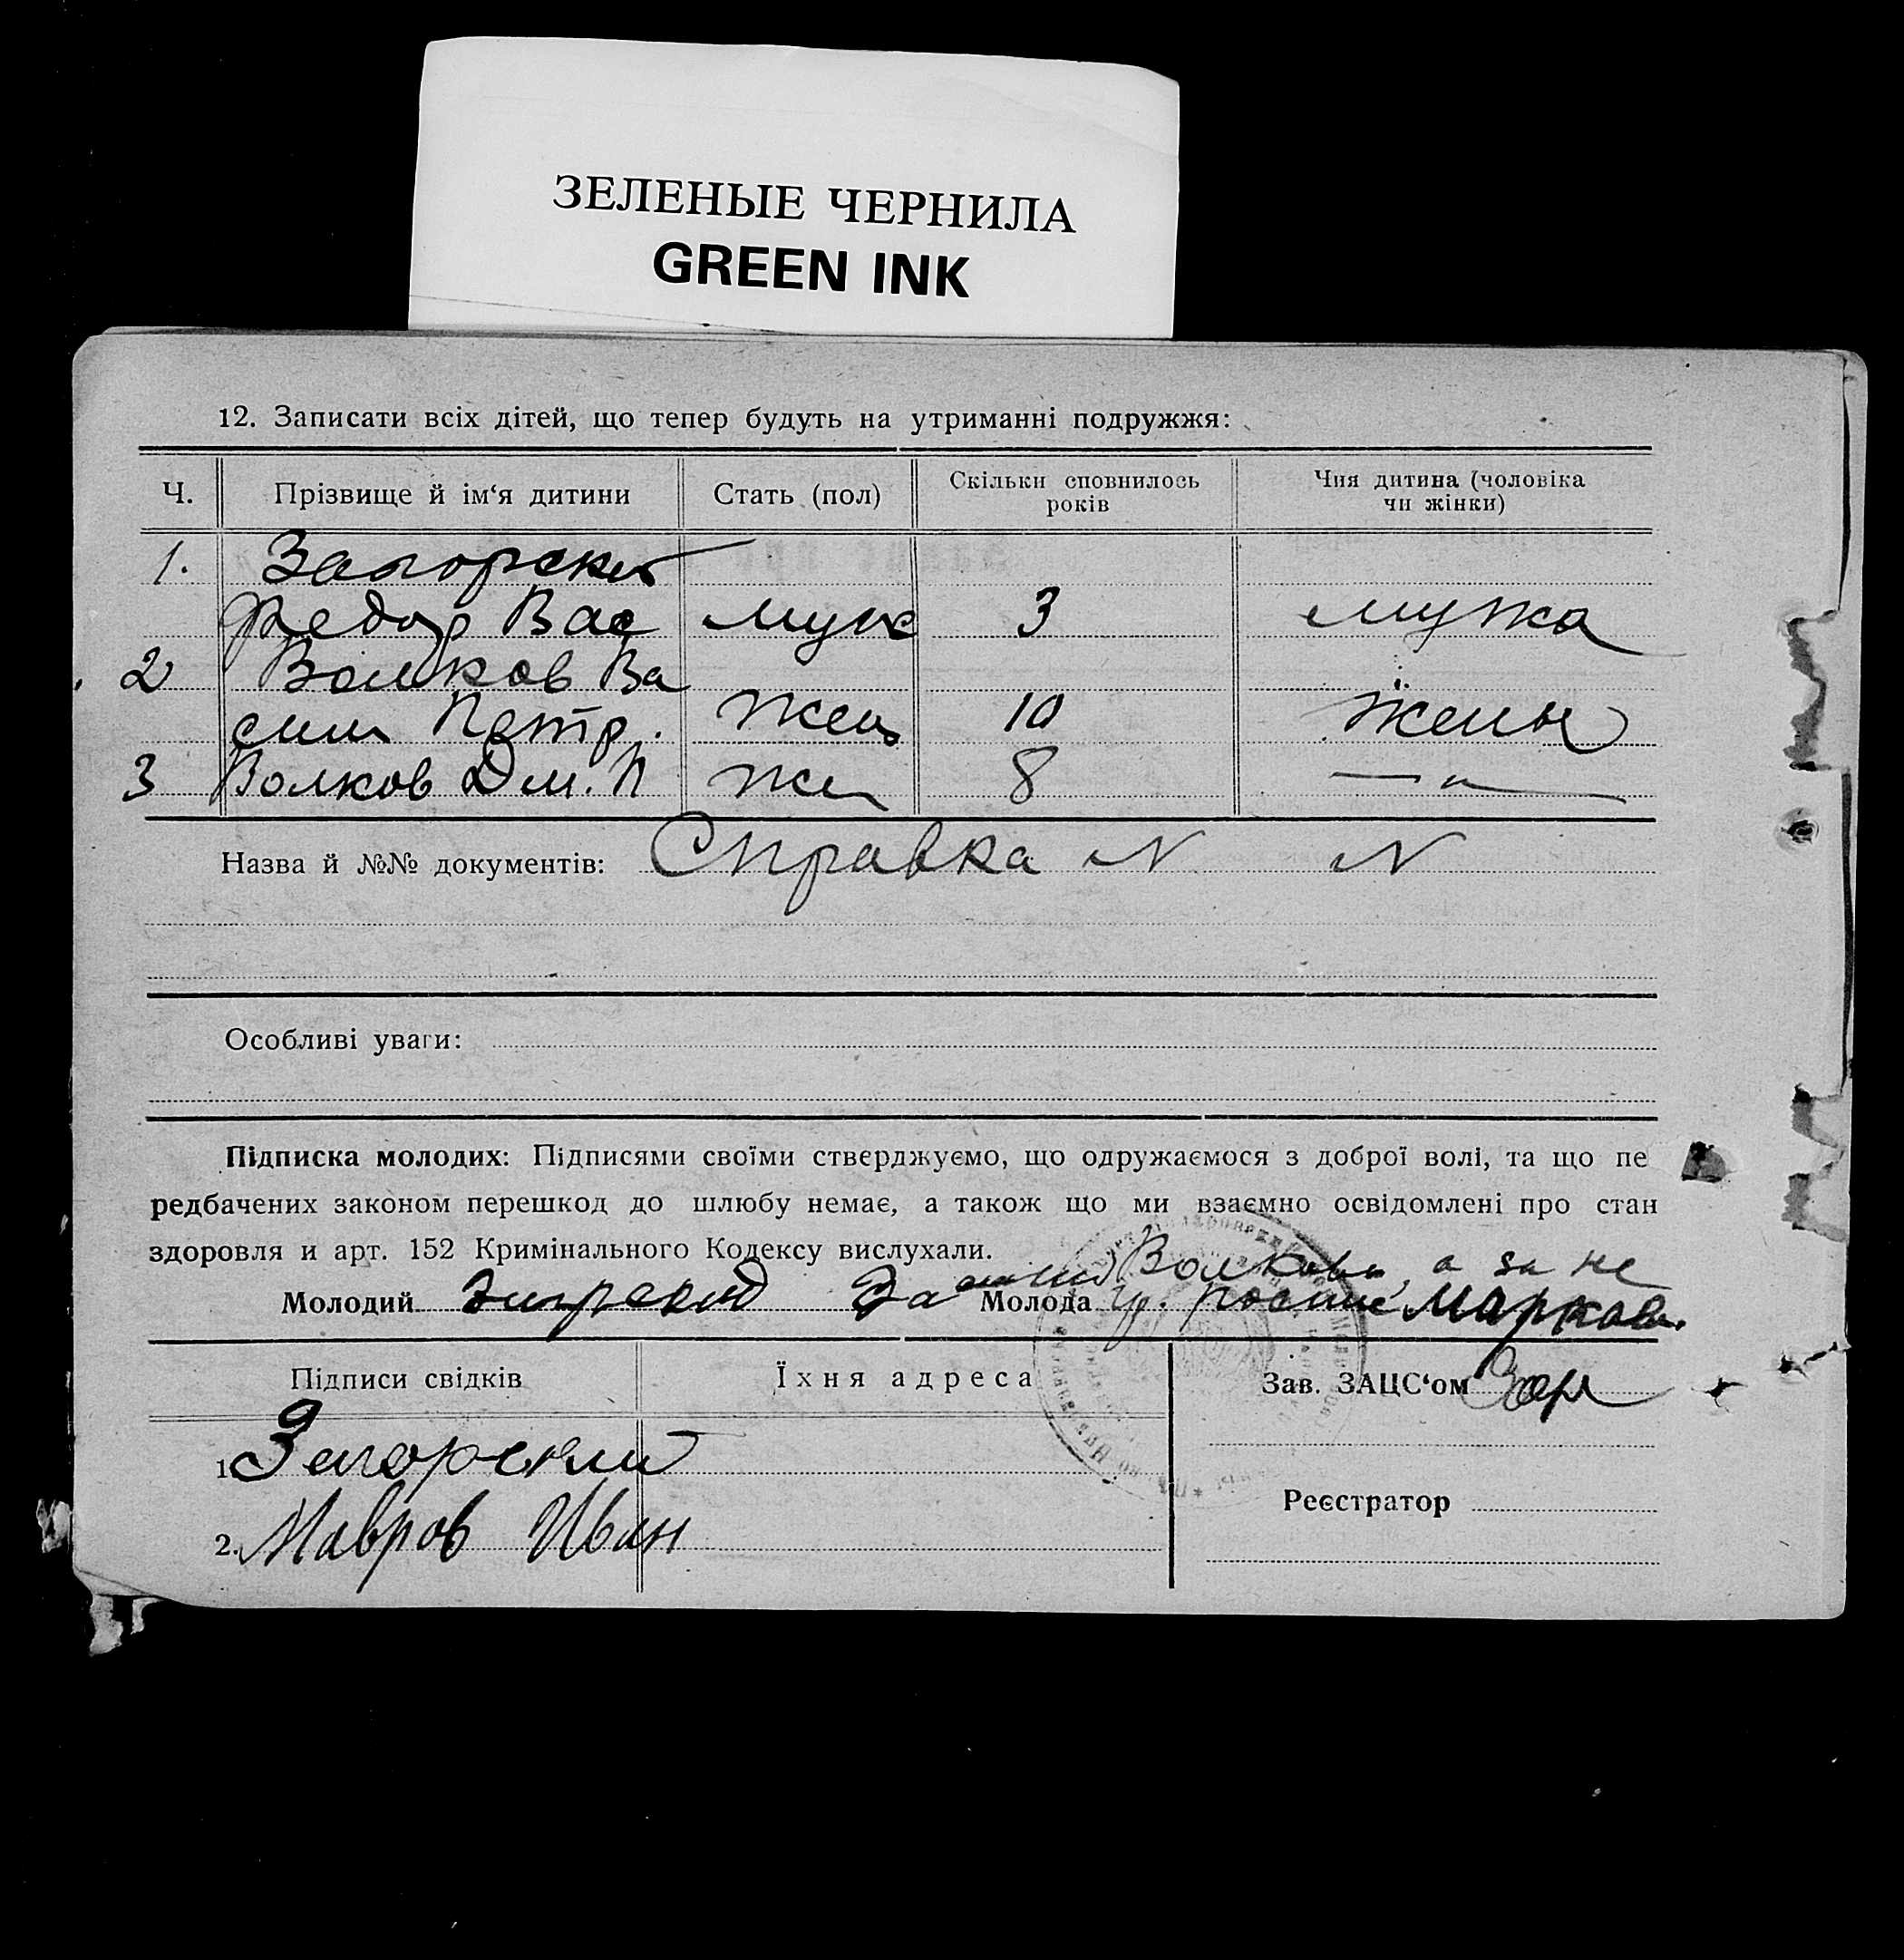 ЗЕЛЕНЫЕ ЧЕРНИЛА
GREEN INK
12. Записати всіх дітей, що тепер будуть на утриманні подружжя:
Ч. Прізвище й ім‘я дитини Стать (пол) Скільки сповнилось років Чия дитина (чоловіка чи жінки)
1. Загорский
Федор Вас муж 3 мужа
2 Волков Ва
сили Петр. жен 10 жены
3 Волков Дм. П же 8 —〃—
Назва й №№ документів: Справка N N
Особливі уваги:
Підписка молодих: Підписями своїми стверджуємо, що одружаємося з доброї волі, та що пе
редбачених законом перешкод до шлюбу немає, а також що ми взаємно освідомлені про стан
здоровля и арт. 152 Кримінального Кодексу вислухали.
Волкова, а за не
Молодий За Молода гр. роспис Маркова.
Підписи свідків Їхня адреса Зав. ЗАЦС‘ом
1. Загорский
Реєстратор
2. Мавров Иван